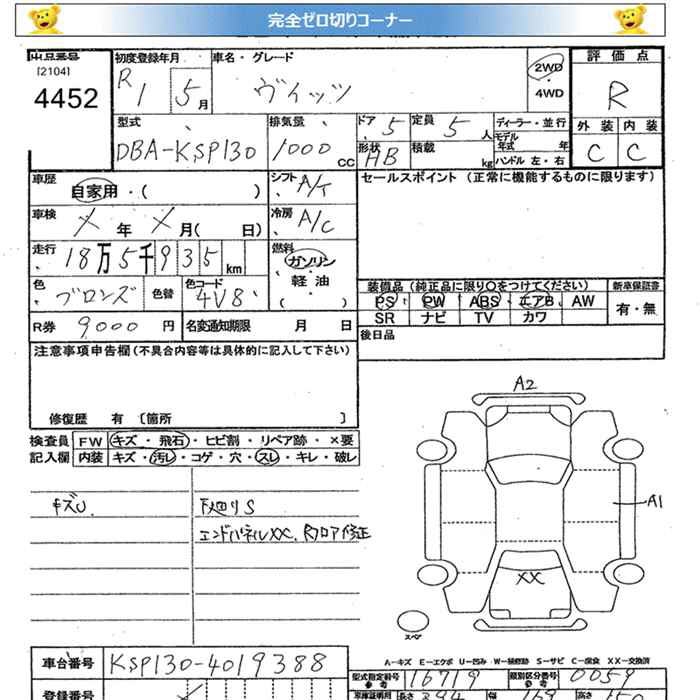 完全ゼロ切りコーナー
出品番号
[2104]
4452
初度登録年月
R1 5月
車名・グレード
ヴィッツ
2WD
4WD
評価点
R
外装 内装
C C
型式
DBA-KSP130
排気量
1000 CC
ドア 5
定員 5 人
形状 HB
積載 kg
ディーラー・並行
モデル年式 年
ハンドル 左・右
車歴
自家用・( )
シフト A/T
セールスポイント (正常に機能するものに限ります)
車検 X 年 X 月( 日)
冷房 A/C
走行 18万5千935km
燃料
ガソリン
軽油
( )
色 ブロンズ
色替
色コード
4V8
装備品 (純正品に限り○をつけてください)
新車保証書
PS PW ABS エアB AW
SR ナビ TV カワ
有・無
R券 9000 円
名変通知期限 月 日
後日品
注意事項申告欄 (不具合内容等は具体的に記入して下さい)
修復歴 有 [箇所 ]
検査員記入欄
FW キズ・飛石・ヒビ割・リペア跡・×要
内装 キズ・汚レ・コゲ・穴・スレ・キレ・破レ
キズU
下廻りS
エンドパネルXX、Rフロア修正
A2
A1
XX
スペア
A-キズ E-エクボ U-凹み W-補修跡 S-サビ C-腐食 XX-交換済
車台番号 KSP130-4019388
型式指定番号 参考 16719
類別区分番号 参考 0059
登録番号
車庫証明用
長さ 394
幅 169
高さ 150